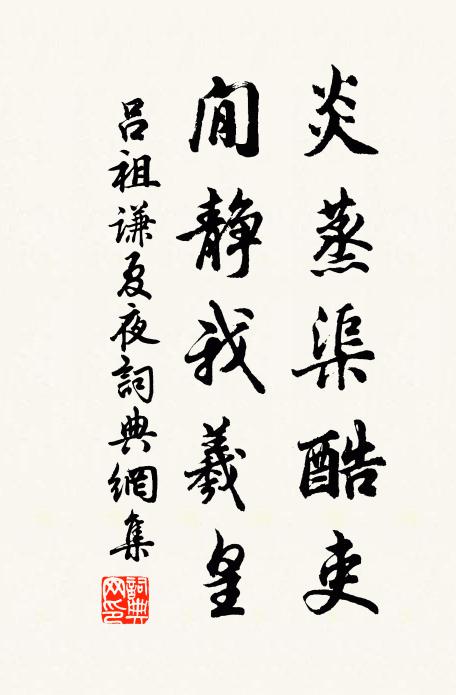 炎蒸渠酷吏
閒静我羲皇
吕祖謙夏夜詞典網集
詞典網印